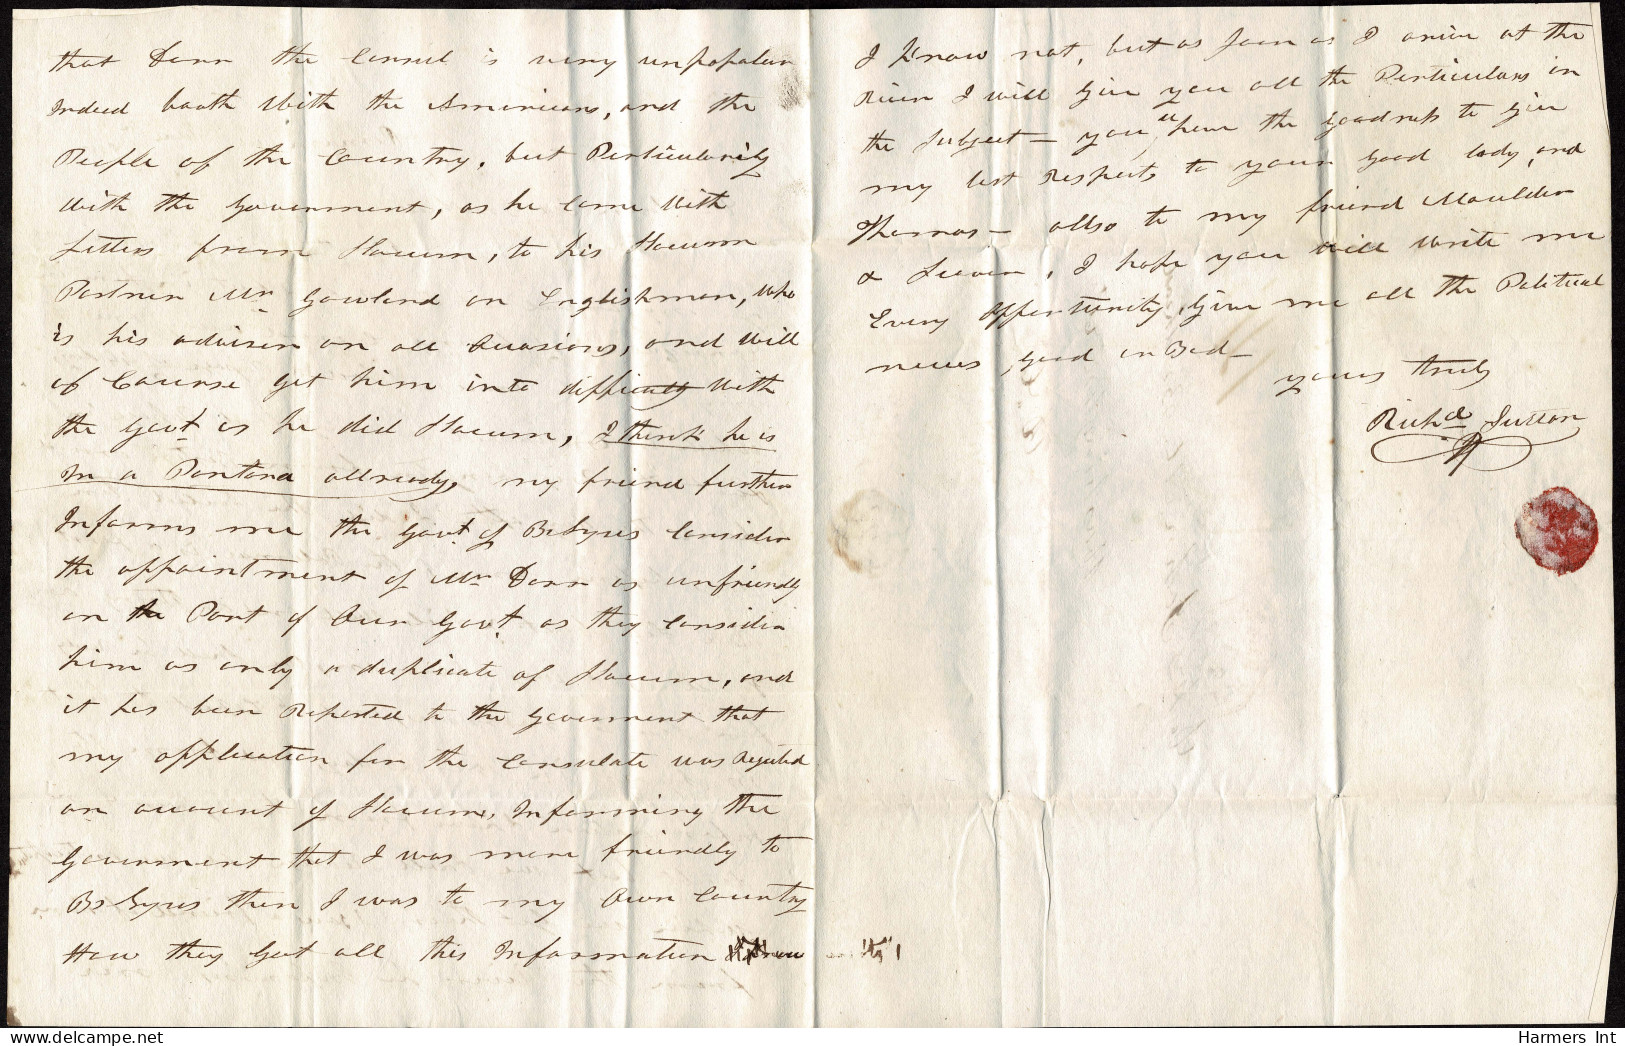 that Dorr the Consul is very unpopular
Indeed booth With the Americans, and the
People of the Country, but Perticularily
With the Government, as he Came With
Letters from Slacum, to his Slacum
Partner Mr Gowland an Englishman, Who
is his adviser on all Occasions, and Will
of Course get him into difficulty With
the Govt as he did Slacum, I think he is
In a Pantana allready, my friend further
Informs me the Govt of Bs Ayres Consider
the appointment of Mr Dorr as unfriendly
on the Part of Our Govt as they Consider
him as only a duplicate of Slacum, and
it has been Reported to the Goverment that
my application for the Consulate was Rejected
on account of Slacum, Informing the
Goverment that I was more friendly to
Bs Ayres then I was to my Own Country
How they Got all this Information
I Know not, but as Soon as I arive at the
River I will Give you all the Perticulars in
the Subject — you ll have the Goodness to Give
my best Respects to your good lady, and
Thomas — allso to my friend Moulder
& Seever, I hope you will Write me
Every Oppertunity, Give me all the Political
news, good or Bad —
yours truly
Richd Sutton
Harmers Int